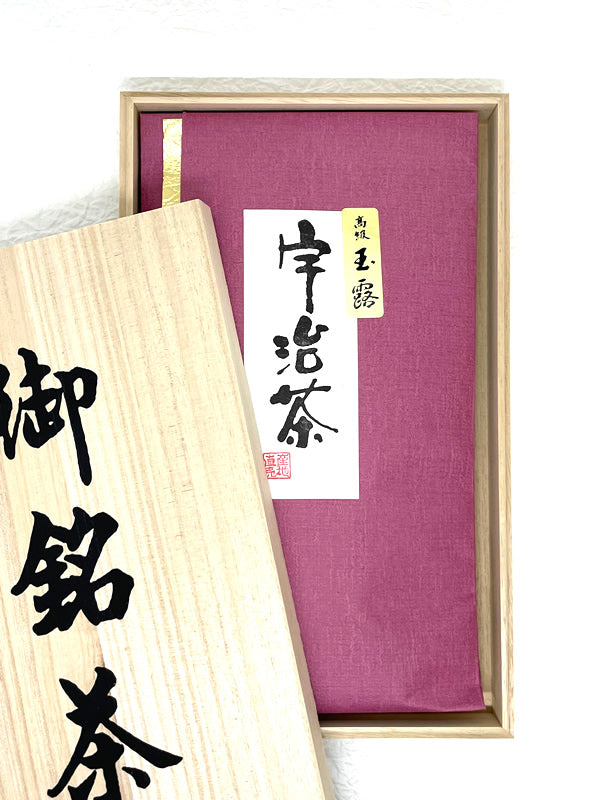 高級 玉露
宇治茶
産地直売
御銘茶